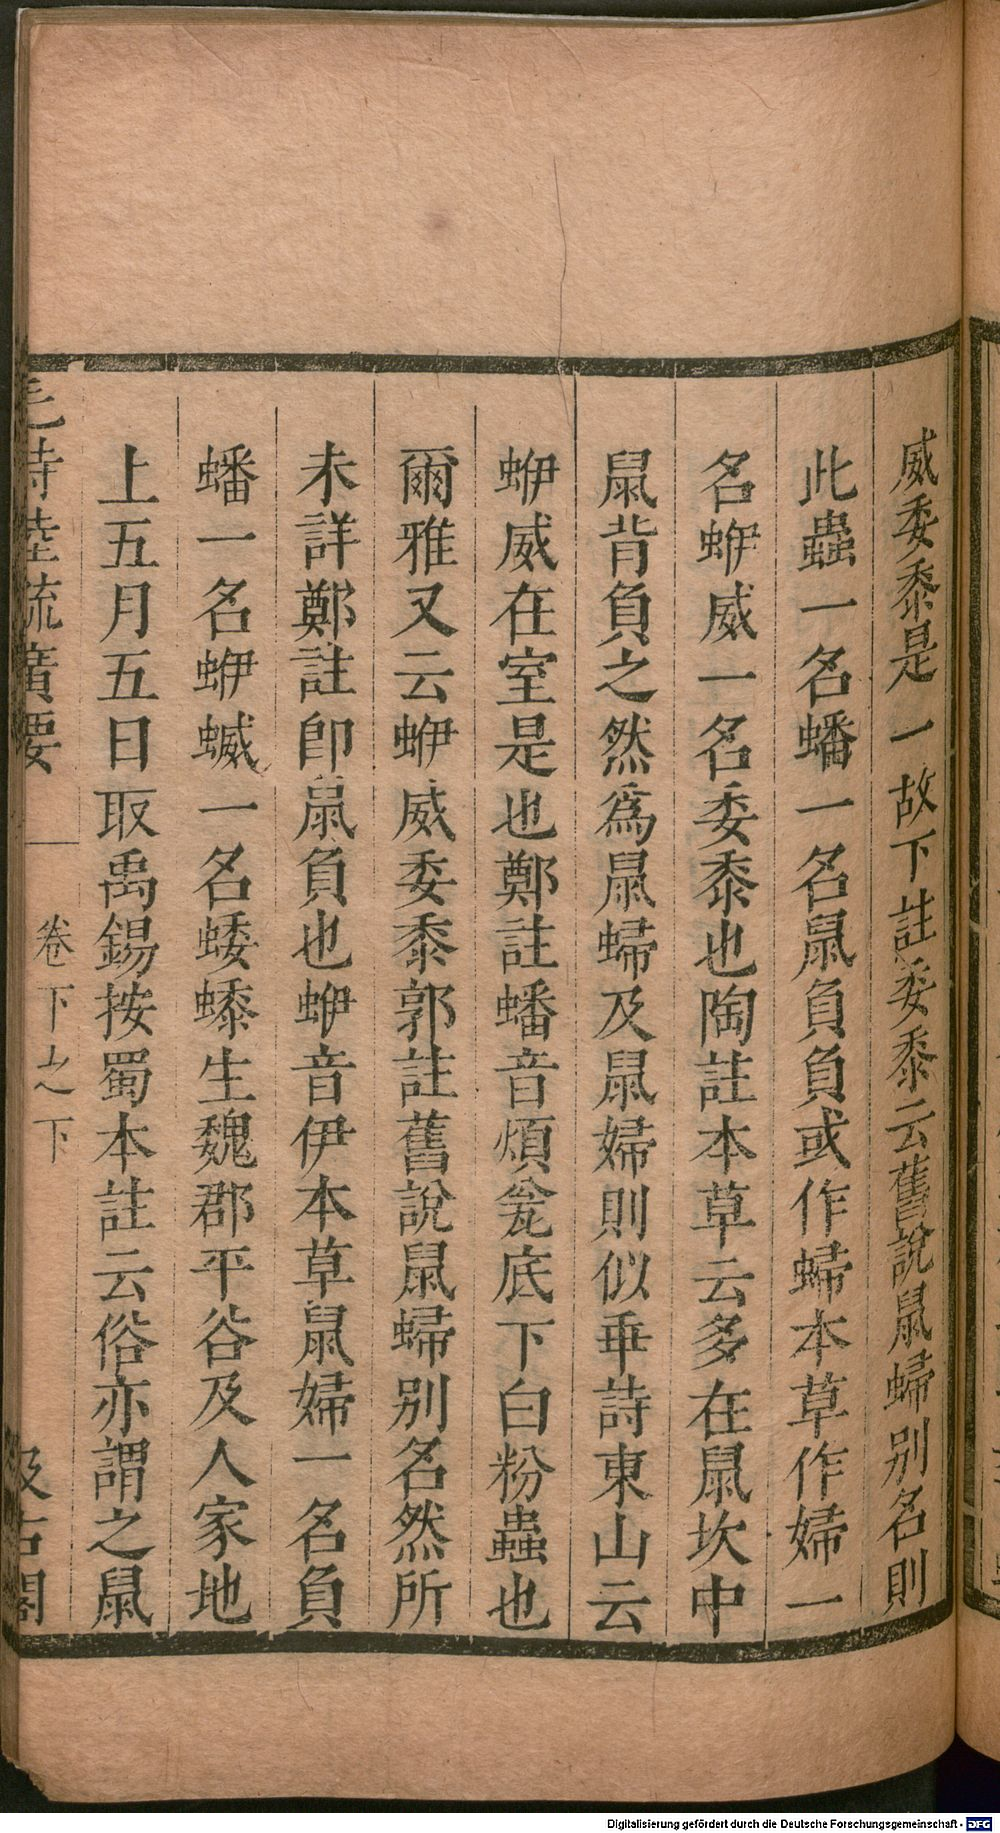 威委黍是一故下註委黍云舊說鼠蜔別名則
此蟲一名蟠一名鼠負負或作蝂本草作婦一
名蛜威一名委黍也陶註本草云多在鼠坎中
鼠背負之然爲鼠蝂及鼠婦則似乖詩東山云
蛜威在室是也鄭註蟠音煩瓮底下白粉蟲也
爾雅又云蛜威委黍郭註舊說鼠蝂别名然所
未詳鄭註卽鼠負也蛜音伊本草鼠婦一名負
蟠一名蛜蝛一名蜲䗝生魏郡平谷及人家地
上五月五日取禹錫按蜀本註云俗亦謂之鼠
毛詩陸疏廣要
卷下之下
汲古閣
Digitalisierung gefördert durch die Deutsche Forschungsgemeinschaft - DFG